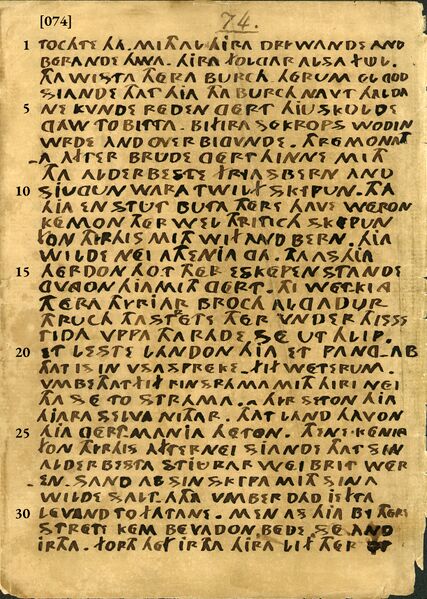 [074]
74.
1 TOCHTE HJA. MITH AL HIRA DRIWANDE AND
BERANDE HAVA. HIRA FOLGAR ALSA FÜL.
THA WISTA THERA BURCH HERUM GL GOD
SIANDE THAT HJA THA BURCH NAVT HALDA
5 NE KVNDE REDEN GERT HJU SKOLDE
GAW TO BITTA. BIHIRA SEKROPS WODIN
WRDE AND OVER BIGVNDE. THRE MONATH
A AFTER BRUDE GERT HINNE MITH
THA ALDERBESTE FRYAS BERN AND
10 SJUGUN WARA TWILIF SKIPUN. THA
HJA EN STUT BUTA THERE HAVE WERON
KEMON THER WEL THRITICH SKEPUN
FON THYRHIS MITH WIF AND BERN. HJA
WILDE NEI ATHENIA GA. THA AS HJA
15 HERDON HO THER ESKEPEN STANDE
GVNGON HJA MITH GERT. THI WETKING
THERA THYRJAR BROCHT ALGADUR
THRUCH THA STRETE THER VNDER THISSE
TIDA VPPA THA RADE SE UTHLIP.
20 ET LESTE LANDON HJA ET PANG-AB
THAT IS IN VSA SPREKE FIF WETERUM.
VMBE THAT FIF RINSTRAMA MITH HIRI NEI
THA SE TO STRAMA. HIR SETON HJA
HJARA SELVA NITHAR. THAT LAND HAVON
25 HJA GERTMANJA HETON. THENE KENING
FON THYRHIS AFTERNEI SIANDE THAT SIN
ALDERBESTA STJURAR WEI BRIT WER
EN. SAND AL SIN SKIPA MITH SINA
WILDE SALT-ATHA VMB ER DAD JEFTA
30 LEVAND TO FATANE. MEN AS HJA BY THERE
STRETE KEM BEVADON BEDE SE AND
IRTHA. FORTH HEF IRTHA HIRA LIF THER